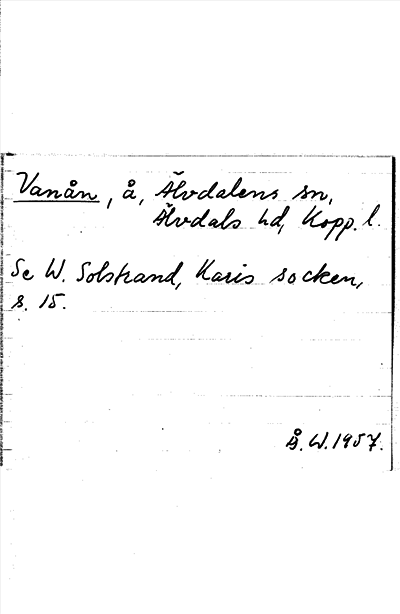 Vanån, å, Älvdalens sn,
Älvdals hd, Kopp. l.
Se W. Solstrand, Karis socken,
s. 15.
Å. W. 1957.